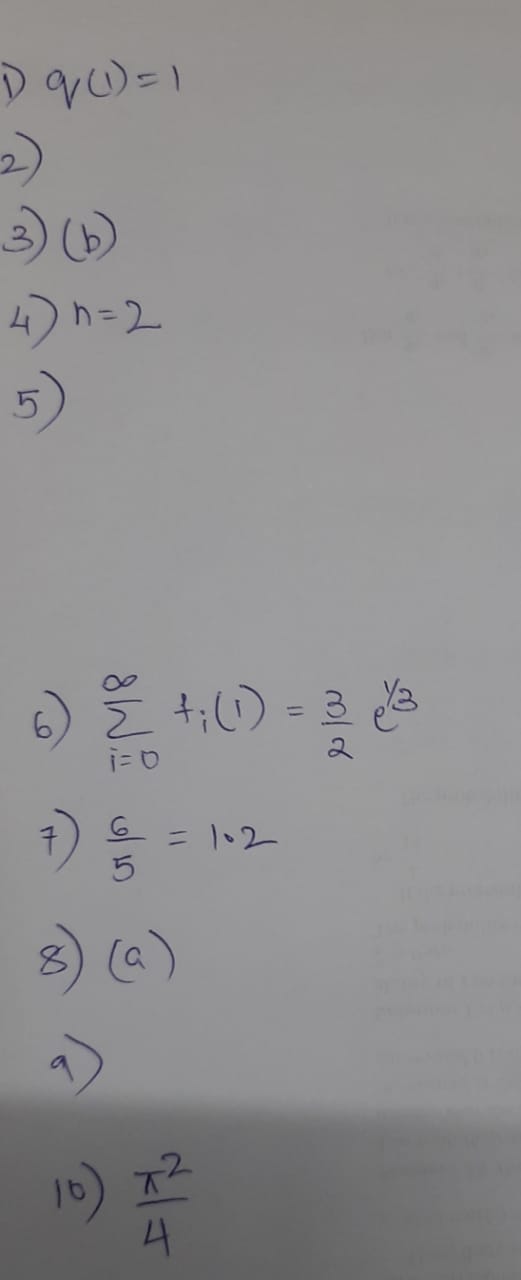 1) q(1)=1
2)
3) (b)
4) n=2
5)
6) ∞∑i=0 fi(1) = 3/2 e^1/3
7) 6/5 = 1.2
8) (a)
9)
10) π²/4